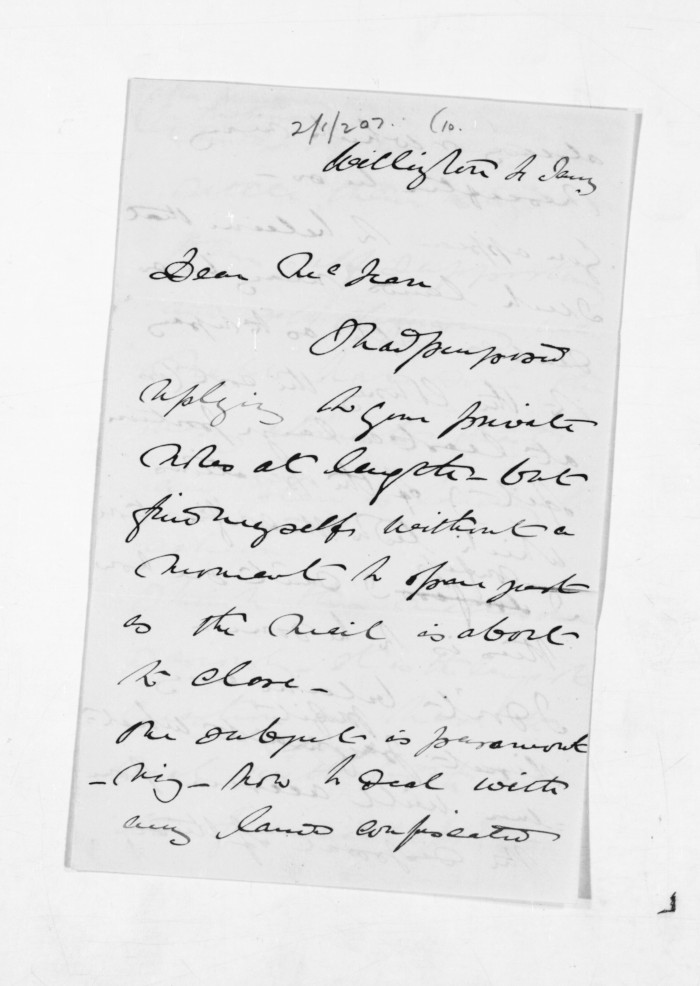 2/1/207. (10.
Wellington 2 Jany
Dear McLean
I had purposed
replying to your private
notes at length - but
find myself without a
moment to spare just
as the mail is about
to close -
One subject is paramount
- viz - how to deal with
any lands confiscated